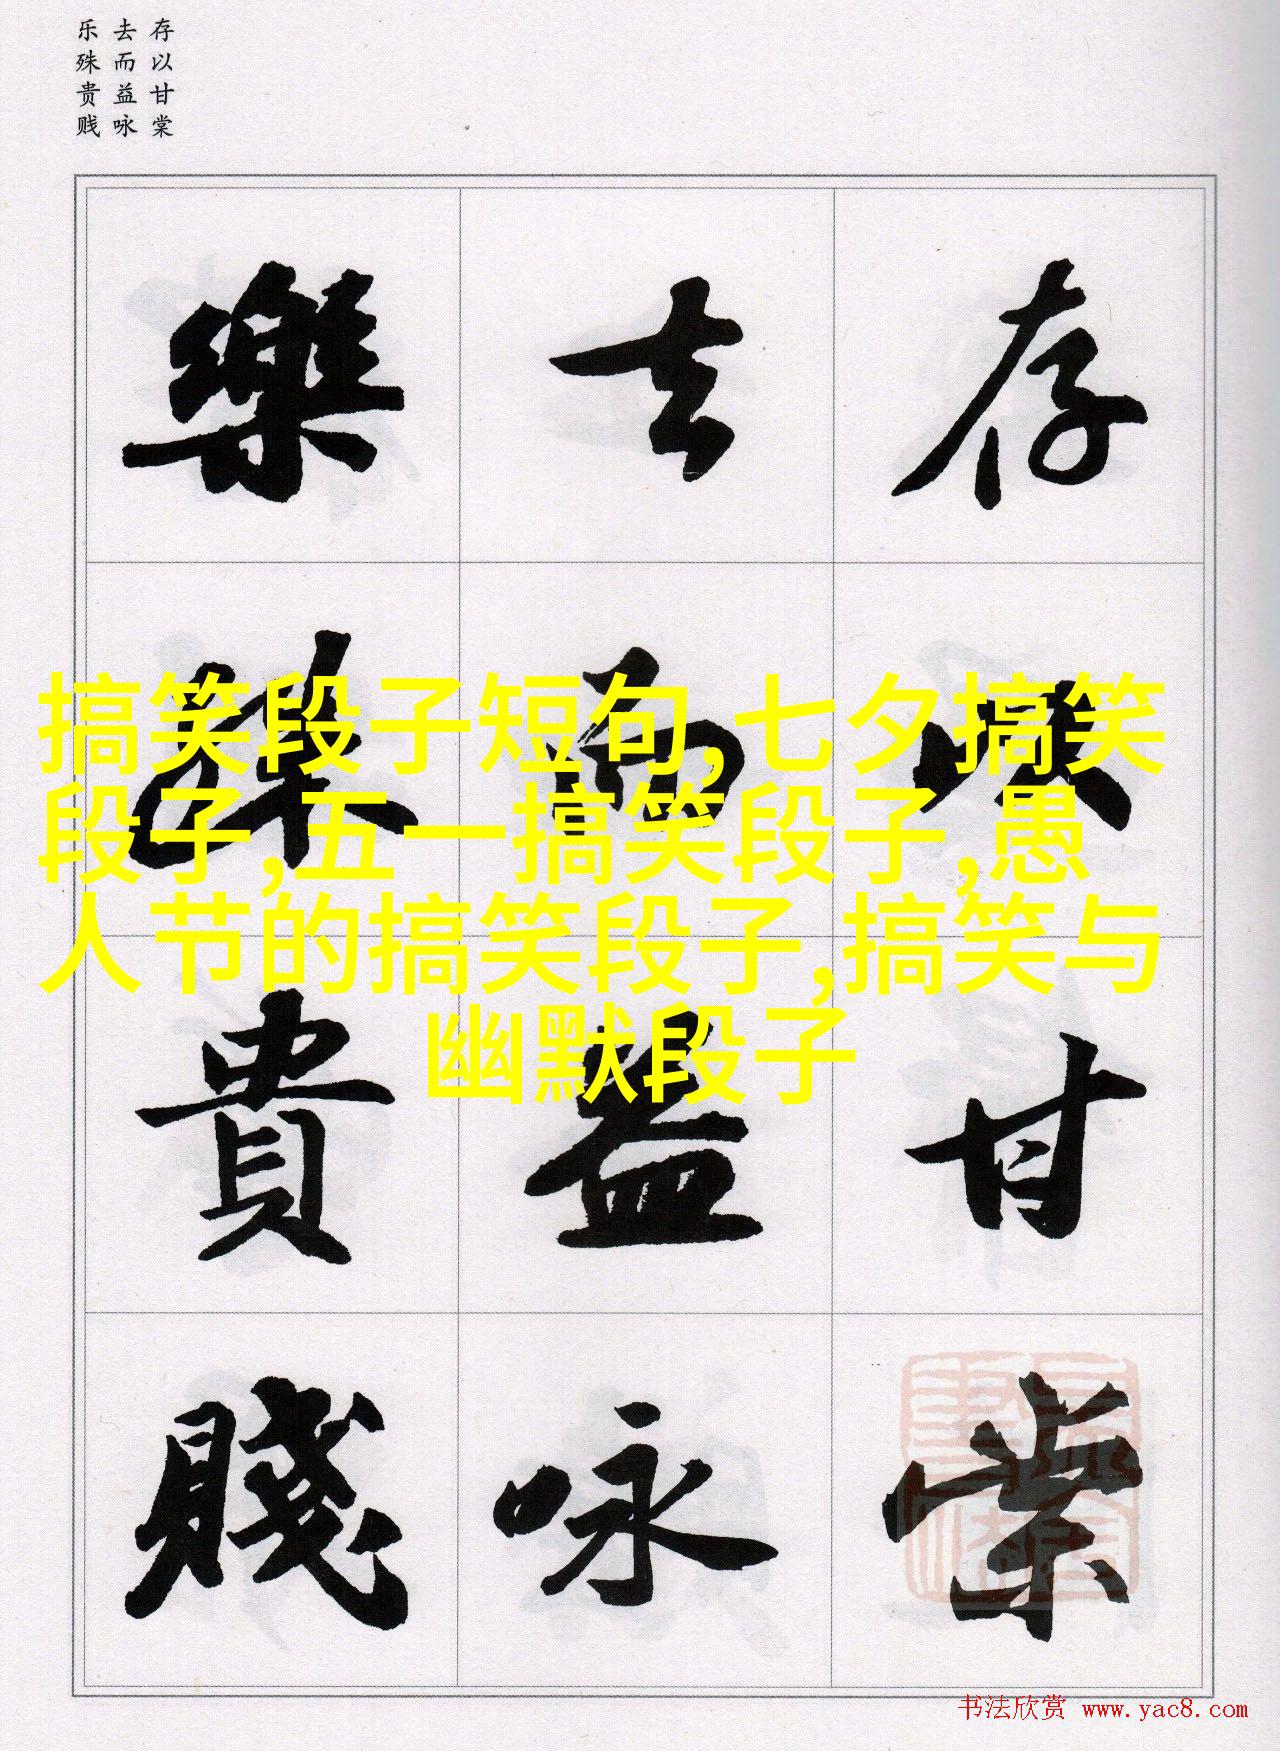 存以甘棠
去而益咏
乐殊贵贱
存以甘棠
去而益咏
樂殊貴賤
搞笑段子短句,七夕搞笑
段子,五一搞笑段子,愚
人节的搞笑段子,搞笑与
幽默段子
书法欣赏 www.yac8.com